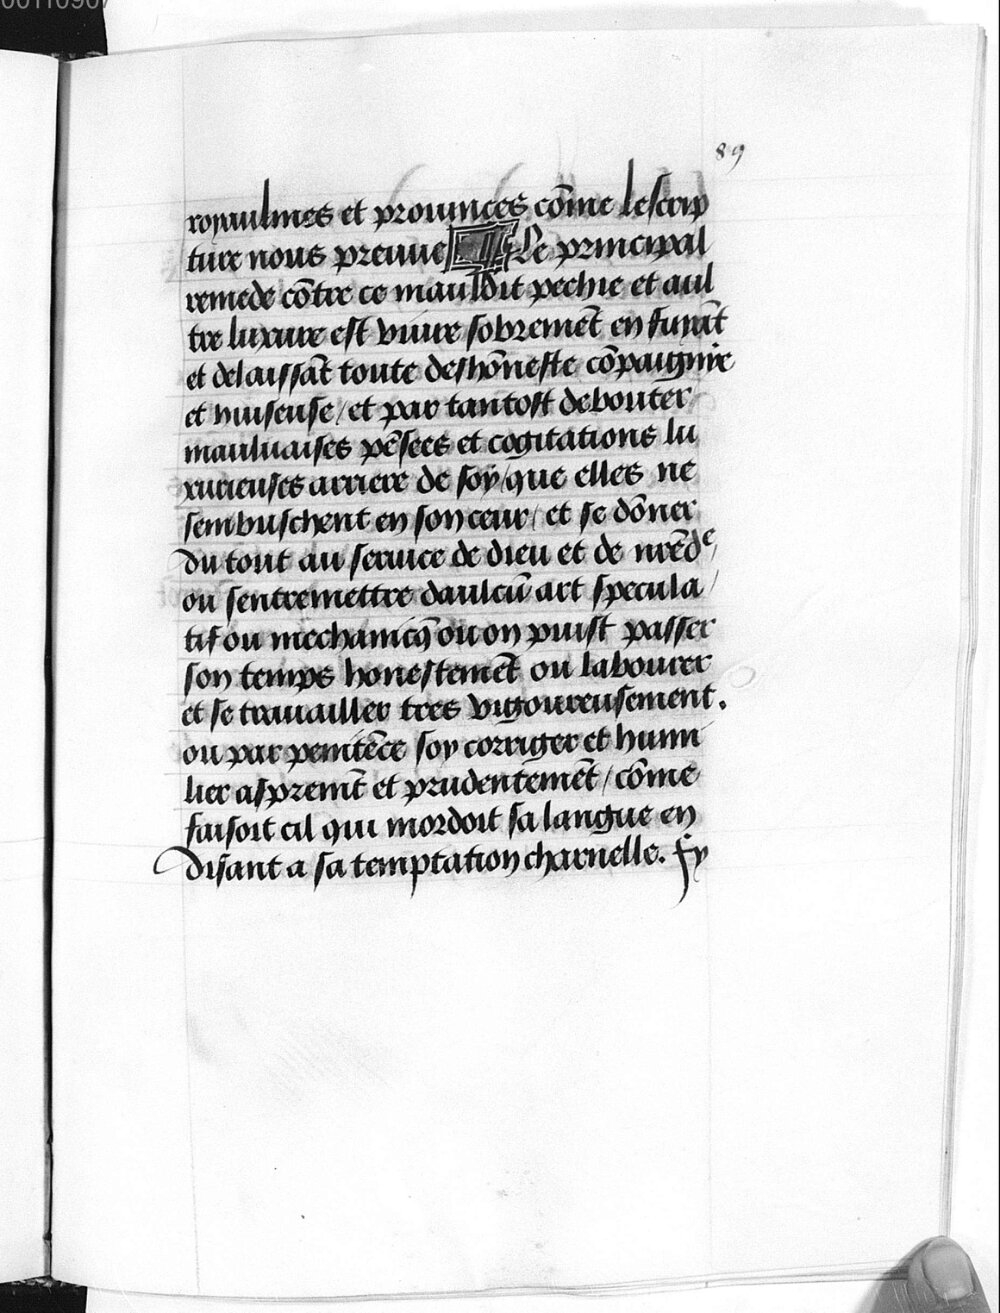 89
royaulmes et prouinces cõme lescrip
ture nous preuue Le principal
remede cõtre ce mauldit pechie et aul
tre luxure est viure sobremẽt en fuyãt
et delaissãt toute deshõneste cõpaignie
et huiseuse / et par tantost debouter
mauluaises pẽsees et cogitations lu
xurieuses arriere de soy / que elles ne
sembuschent en son ceur / et se dõner
du tout au seruice de dieu et de
ou sentremettre daulcũ art specula /
tif ou mechanicq̃ ou on puist passer
son temps honestemẽt ou labourer
et se trauailler tres vigoureusement.
ou par penitẽce soy corriger et humi
lier aspremẽt et prudentemẽt / cõme
faisoit cil qui mordoit sa langue en
disant a sa temptation charnelle. fy